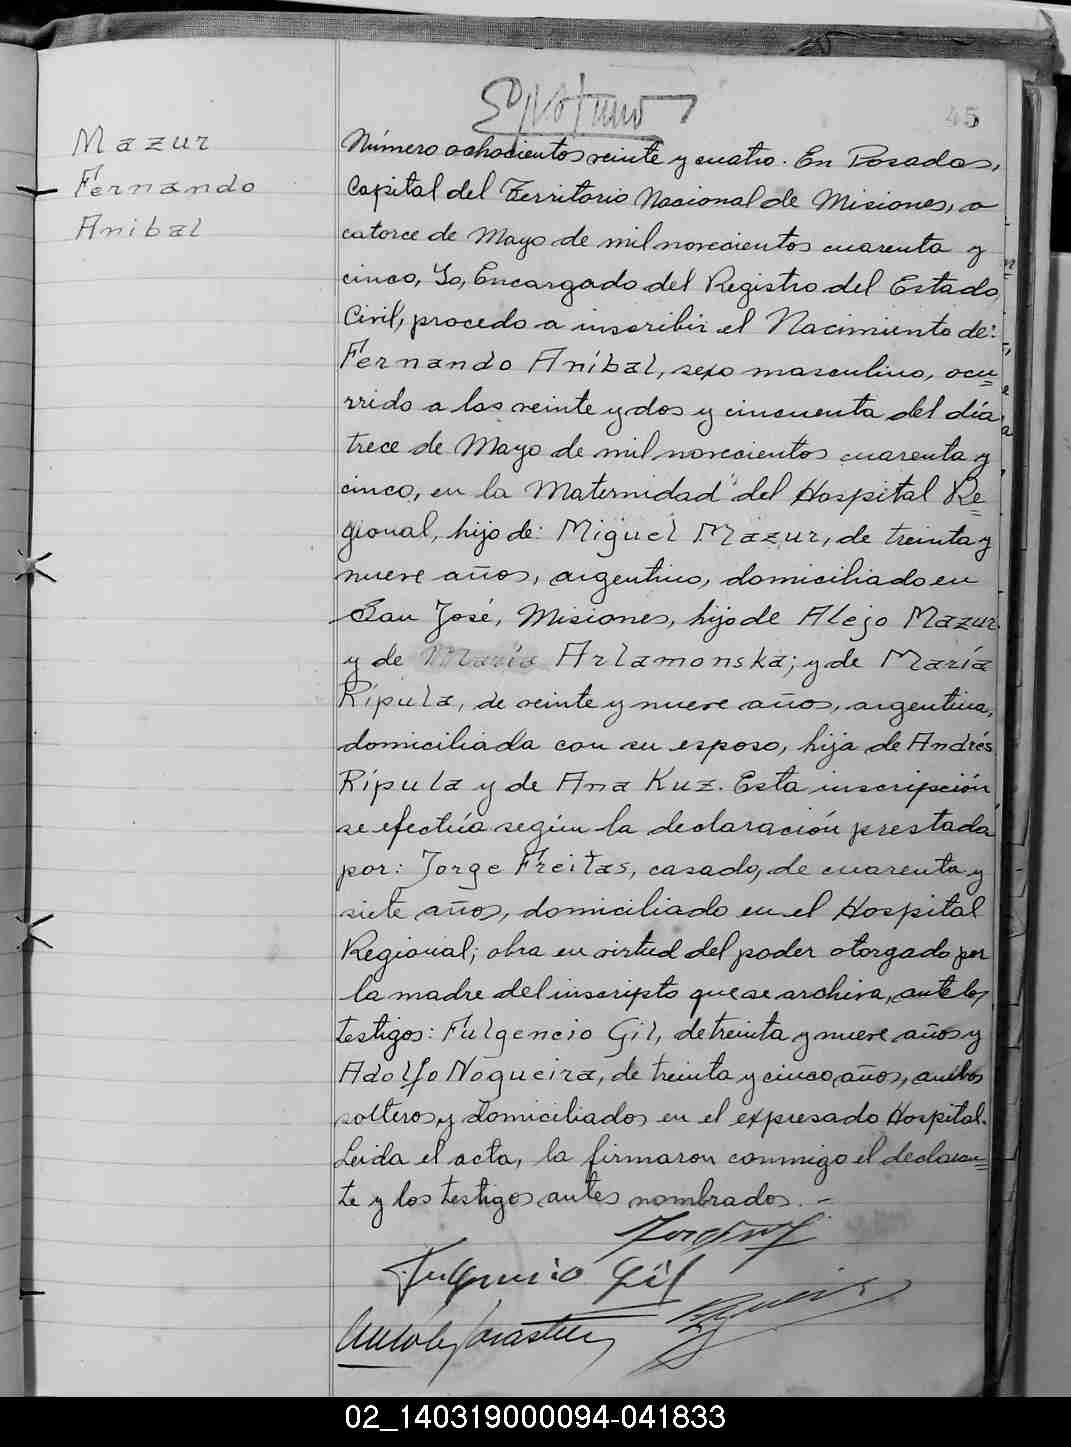 45
Mazur
Fernando
Anibal
Número ochocientos veinte y cuatro. En Posadas,
Capital del Territorio Nacional de Misiones, a
catorce de Mayo de mil novecientos cuarenta y
cinco, Yo, Encargado del Registro del Estado
Civil, procedo a inscribir el Nacimiento de:
Fernando Aníbal, sexo masculino, ocu=
rrido a las veinte y dos y cincuenta del día
trece de Mayo de mil novecientos cuarenta y
cinco, en la Maternidad del Hospital Re=
gional, hijo de: Miguel Mazur, de treinta y
nueve años, argentino, domiciliado en
San José, Misiones, hijo de Alejo Mazur
y de María Arlamonska; y de María
Rípula, de veinte y nueve años, argentina,
domiciliada con su esposo, hija de Andrés
Rípula y de Ana Kuz. Esta inscripción
se efectúa según la declaración prestada
por: Jorge Freitas, casado, de cuarenta y
siete años, domiciliado en el Hospital
Regional; obra en virtud del poder otorgado por
la madre del inscripto que se archiva, ante los
testigos: Fulgencio Gil, de treinta y nueve años y
Adolfo Nogueira, de treinta y cinco años, ambos
solteros y domiciliados en el expresado Hospital.
Leida el acta, la firmaron conmigo el declaran=
te y los testigos antes nombrados. -
Fulgencio Gil
02_140319000094-041833